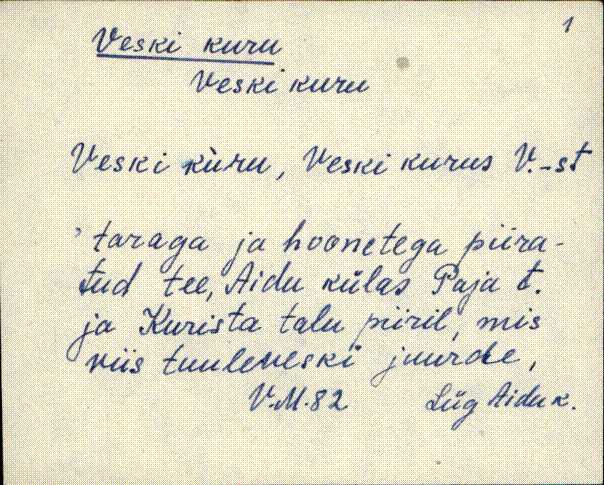 1
Veski kuru
Veski kuru
Veski kuru, Veski kurus V.-st
'taraga ja hoonetega piira-
tud tee, Aidu külas Paja t.
ja Kurista talu piiril, mis
viis tuuleveski juurde,
V.M.82 Lüg Aidu k.